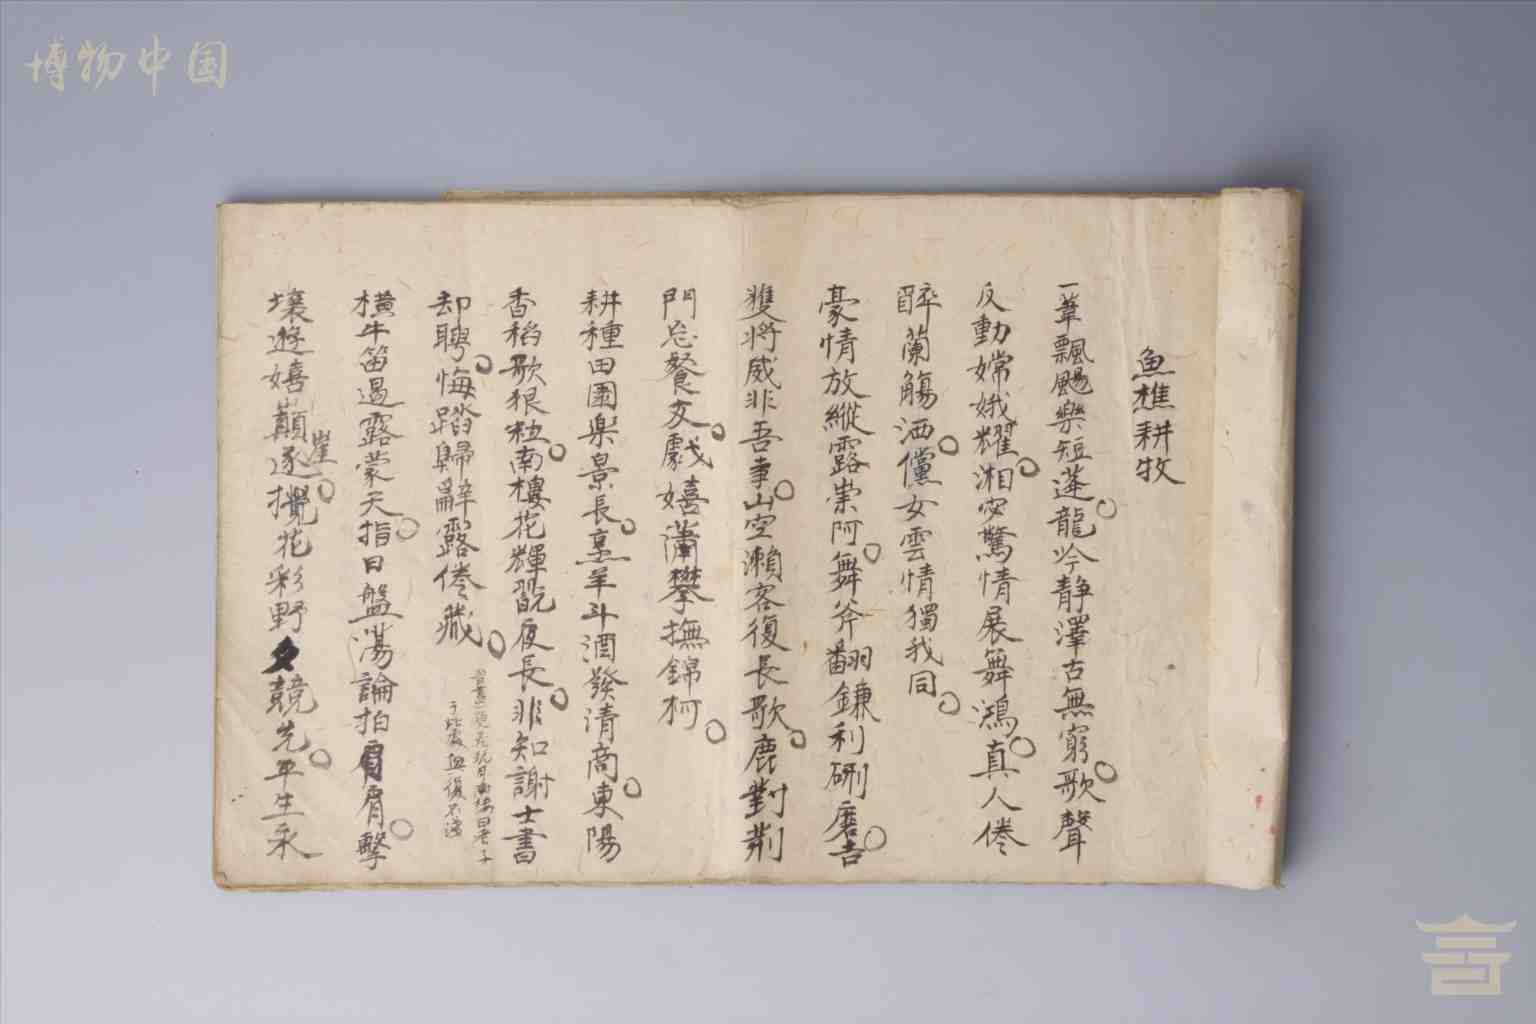 博物中国
魚樵耕牧
一葦飄颺樂短蓬龍吟静澤古無窮歌聲
反動嫦娥耀湘安驚情展舞鴻真人倦
醉蘭觴洒儻女雲情獨我同
豪情放縱露崇阿舞斧翻鐮利硎磨吉
獲將威非吾事山空瀨客復長歌鹿對荆
門忘餐友戲嬉蕭攀撫錦柯
耕種田園樂景長烹羊斗酒發清商東陽
香稻歌狠粒南樓花輝翫夜長非知謝士書
却聘悔踏歸辭露倦藏
于此處並復不淺
橫牛笛過露蒙天指日盤蕩論拍肩擊
壤遊嬉巔崖逐攪花彩野夕競先平生永